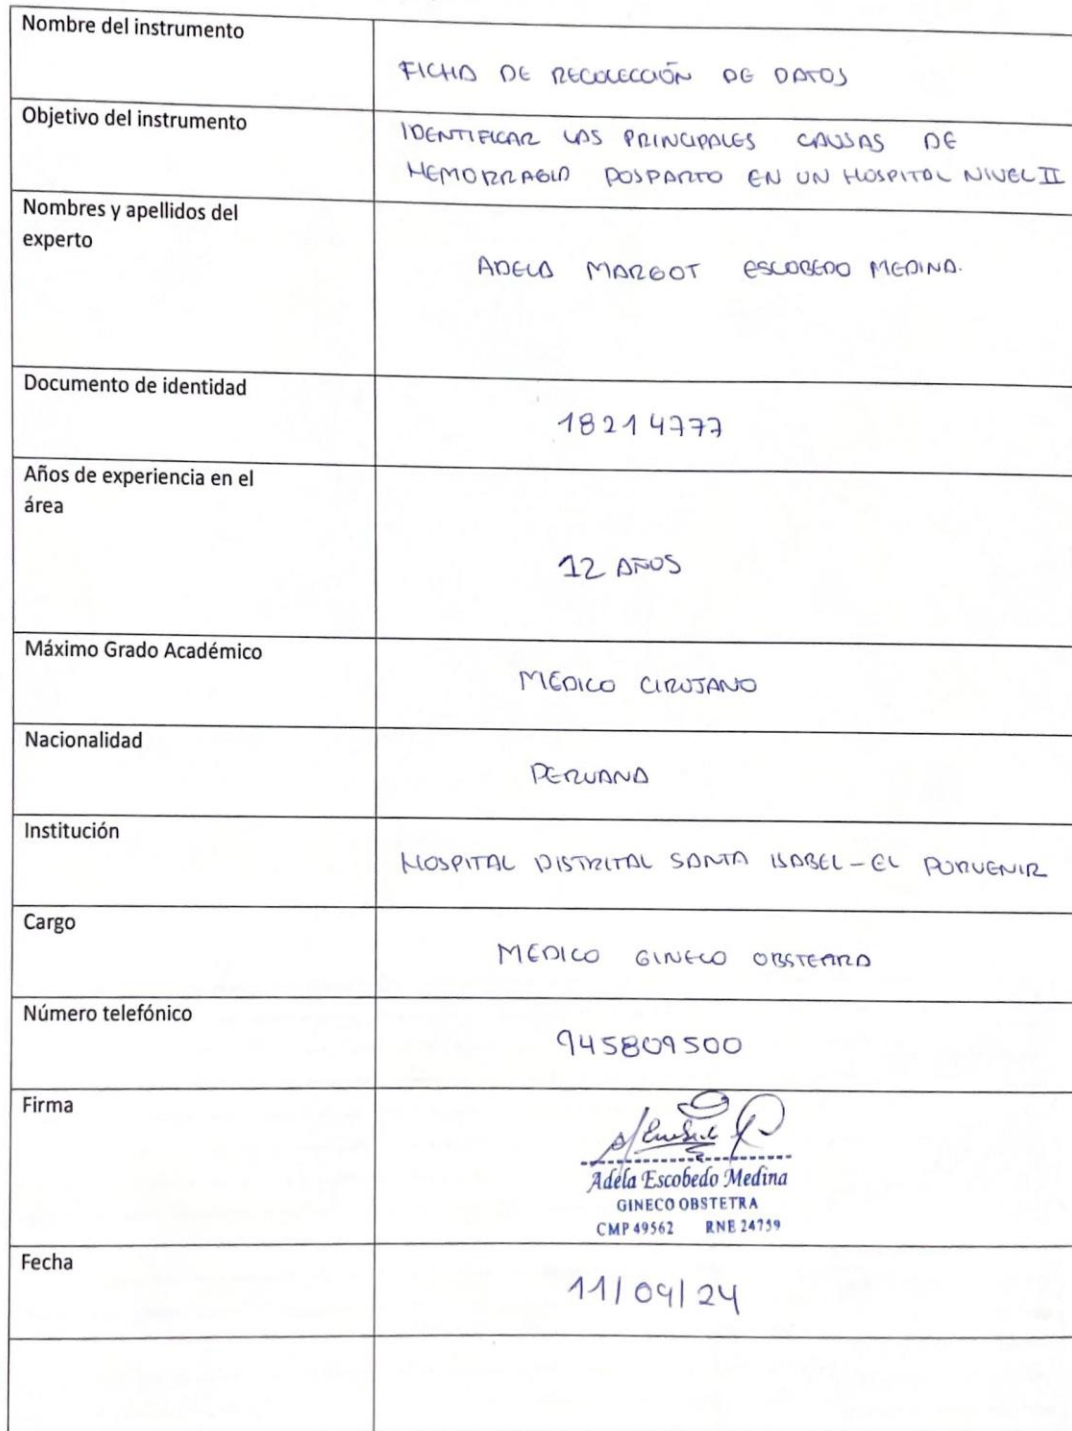 Nombre del instrumento
FICHA DE RECOLECCIÓN DE DATOS
Objetivo del instrumento
IDENTIFICAR LAS PRINCIPALES CAUSAS DE
HEMORRAGIA POSPARTO EN UN HOSPITAL NIVEL II
Nombres y apellidos del
experto
ADELA MARGOT ESCOBEDO MEDINA.
Documento de identidad
18214777
Años de experiencia en el
área
12 AÑOS
Máximo Grado Académico
MEDICO CIRUJANO
Nacionalidad
PERUANA
Institución
HOSPITAL DISTRITAL SANTA ISABEL - EL PORVENIR
Cargo
MEDICO GINECO OBSTETRA
Número telefónico
945809500
Firma
Adela Escobedo Medina
GINECO OBSTETRA
CMP 49562 RNE 24759
Fecha
11/09/24